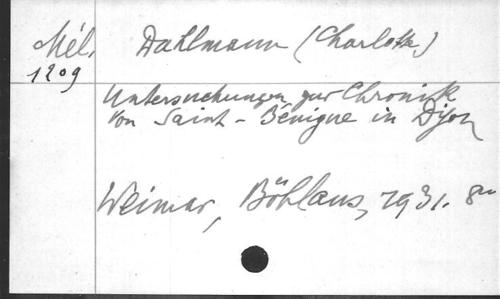 Mél. Dahlmann (Charlotte)
1209
Untersuchungen zur Chronik
von Saint-Bénigne in Dijon
Weimar, Böhlaus, 1931. 8°